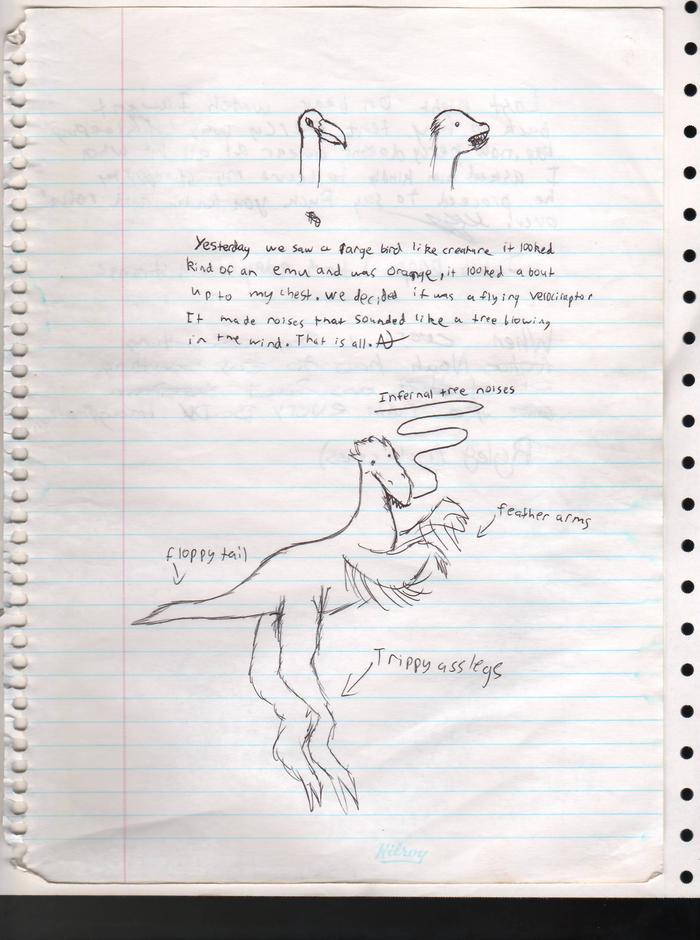 Yesterday we saw a large bird like creature it looked
kind of an emu and was orange, it looked about
up to my chest. we decided it was a flying velociraptor
It made noises that sounded like a tree blowing
in the wind. That is all.
Infernal tree noises
feather arms
floppy tail
Trippy ass legs
Hilroy